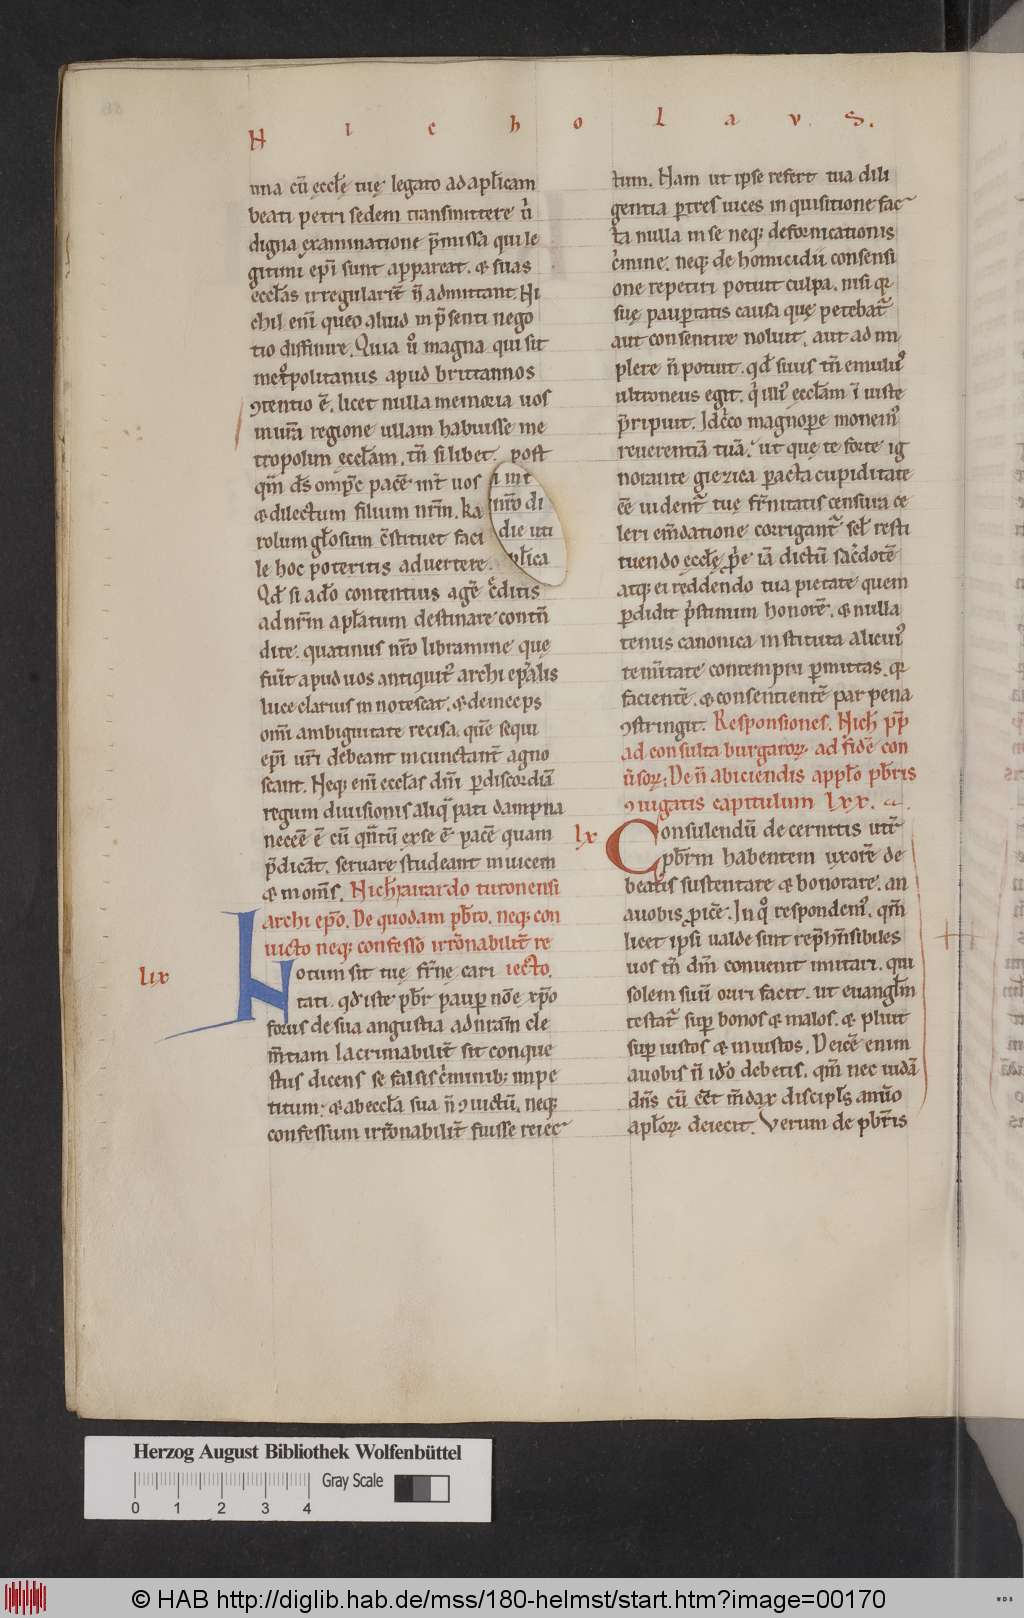 N i c h o l a v S.
una cū ęccl̄ę tuę legato ad apl̄icam
beati petri sedem transmittere ū
digna examinatione p̄missa qui le
gitimi ep̄i sunt appareat. & suas
eccl̄as irregularit̄ n̄ admittant. Ni
chil eni̅ quęo aliud in p̄senti nego
tio diffinire. Quia u° magna qui sit
met°politanus apud brittannos
ꝯtentio ē. licet nulla memoria uos
in ur̄a regione ullam habuisse me
tropolim ęccl̄am. tn̄ si libet. post
qm̄ ds̄ omp̄s pacē int̄ uos
& dilectum filium nr̄m. ka
rolum gl̄osum c̄stituet faci
le hoc poteritis aduertere.
Qd̄ si ad°o contentius agē c̄ditis
ad nr̄m apl̄atum destinare contn̄
dite. quatinus nr̄o libramine quę
fuīt apud uos antiquit° archi ep̄alis
luce clarius innotescat. & deinceps
om̄i ambiguitate recisa. quē sequi
ep̄i ur̄i debeant incunctant̄ agno
scant. Neq; eni̅ eccl̄as dn̄i ꝑ discordiā
regum diuisionis aliq̄ pati dampna
necēē ē cū qn̄tū ex se ē pacē quam
p̄dicāt. seruare studeant inuicem
& in om̄s. Nich̄. airardo turonensi
archi ep̄o. De quodam pb̄ro. neq; con
uicto neq; confesso irr̄onabilit̄ re
iecto.
lix
Notum sit tuę fr̄nę cari
tati. qd̄ iste pb̄r paup nōe xp̄o
forus de sua angustia ad nrām cle
m̄tiam lacrimabilit̄ sit conque
stus dicens se falsis c̄minib; impe
titum; & ab eccl̄a sua n̄ ꝯuictū. neq;
confessum irr̄onabilit̄ fuisse reiec
i int
nr̄o di
die uti
pl̄ica
tum. Nam ut ipse refert tua dili
gentia ꝑ tres uices inquisitione fac
ta nulla in se neq; de fornicationis
c̄mine. neq; de homicidii consensi
one repetiri potuit culpa. nisi qꝛ
suę pauꝑtatis causa quę petebat̄
aut consentire noluit. aut ad im
plere n̄ potuit. qd̄ suus tn̄ emulu°
ultroneus egit. q̇ illi° ęccl̄am īiuste
p̄ripuit. Idc̄co magnope monem°
reuerentiā tuā. ut quę te forte ig
norante giezica ꝑacta cupiditate
ēē uident̄ tuę fr̄nitatis censura ce
leri em̄datione corrigant̄ sel̄ resti
tuendo eccl̄ę p̄pe iā dictū sac̄dotē
atq; ei reddendo tua pietate quem
ꝑdidit p̄stinum honorē. & nulla
tenus canonica instituta alicui°
temītate contempni ꝑmittas. qꝛ
facientē. & consentientē par pena
ꝯstringit. Responsiones. Nich̄ pp̄
ad consulta burgarꝝ. ad fidē con
ūsoꝝ; De n̄ abiciendis appl̄o pb̄ris
ꝯiugatis capitulum lxx.
lx
Consulendū decernitis utr̄
pb̄rm habentem uxorē de
beatis sustentare & honorare. an
a uobis ꝓicē. In q° respondem°. qm̄
licet ipsi ualde sint rep̄hn̄sibiles
uos tn̄ dm̄ conuenit imitari. qui
solem suū oriri facit. ut euangl̄m
testat̄ sup bonos & malos. & pluit
sup iustos & iniustos. Deicē enim
a uobis n̄ id°o debetis. qm̄ nec iudā
dn̄s cū ēēt m̄dax discipl̄s a nūo
apl̄oꝝ. deiecit. Verum de pb̄ris
Herzog August Bibliothek Wolfenbüttel
0 1 2 3 4
Gray Scale
© HAB http://diglib.hab.de/mss/180-helmst/start.htm?image=00170